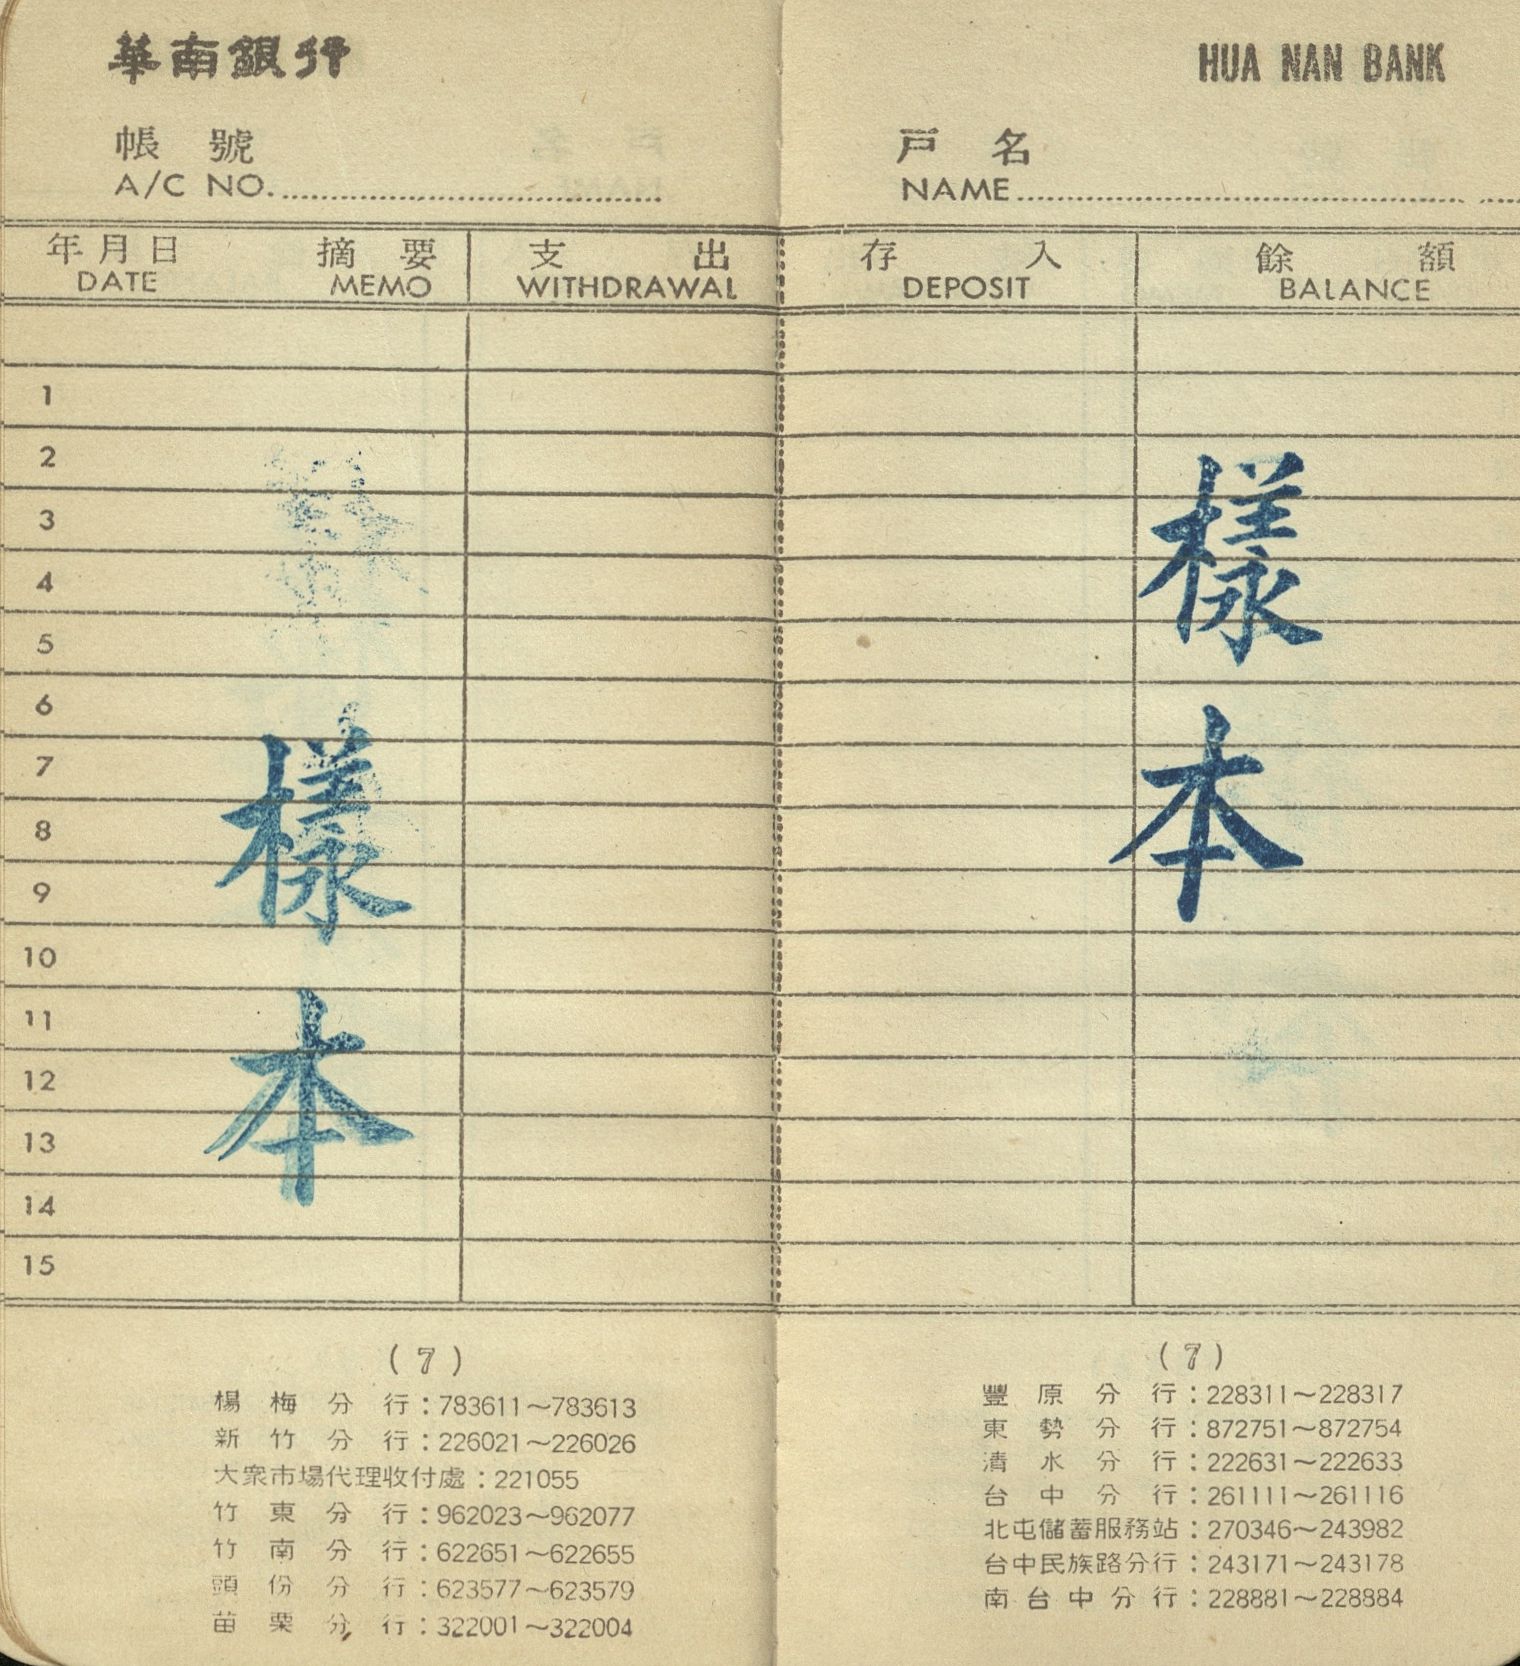 華南銀行
HUA NAN BANK
帳號
A/C NO.
戶名
NAME
年月日 摘要 支出 存入 餘額
DATE MEMO WITHDRAWAL DEPOSIT BALANCE
1
2
3
4
5
6
7
8
9
10
11
12
13
14
15
樣本
樣本
(7)
楊梅分行：783611～783613
新竹分行：226021～226026
大眾市場代理收付處：221055
竹東分行：962023～962077
竹南分行：622651～622655
頭份分行：623577～623579
苗栗分行：322001～322004
(7)
豐原分行：228311～228317
東勢分行：872751～872754
清水分行：222631～222633
台中分行：261111～261116
北屯儲蓄服務站：270346～243982
台中民族路分行：243171～243178
南台中分行：228881～228884